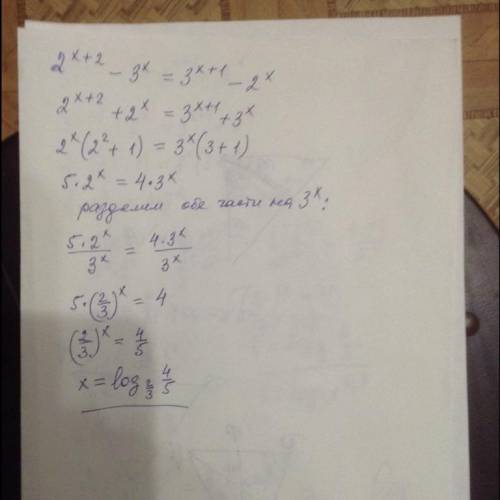 2^{x+2} - 3^x = 3^{x+1} - 2^x
2^{x+2} + 2^x = 3^{x+1} + 3^x
2^x (2^2 + 1) = 3^x (3 + 1)
5 · 2^x = 4 · 3^x
разделим обе части на 3^x:
\frac{5 · 2^x}{3^x} = \frac{4 · 3^x}{3^x}
5 · (\frac{2}{3})^x = 4
(\frac{2}{3})^x = \frac{4}{5}
x = log_{\frac{2}{3}} \frac{4}{5}